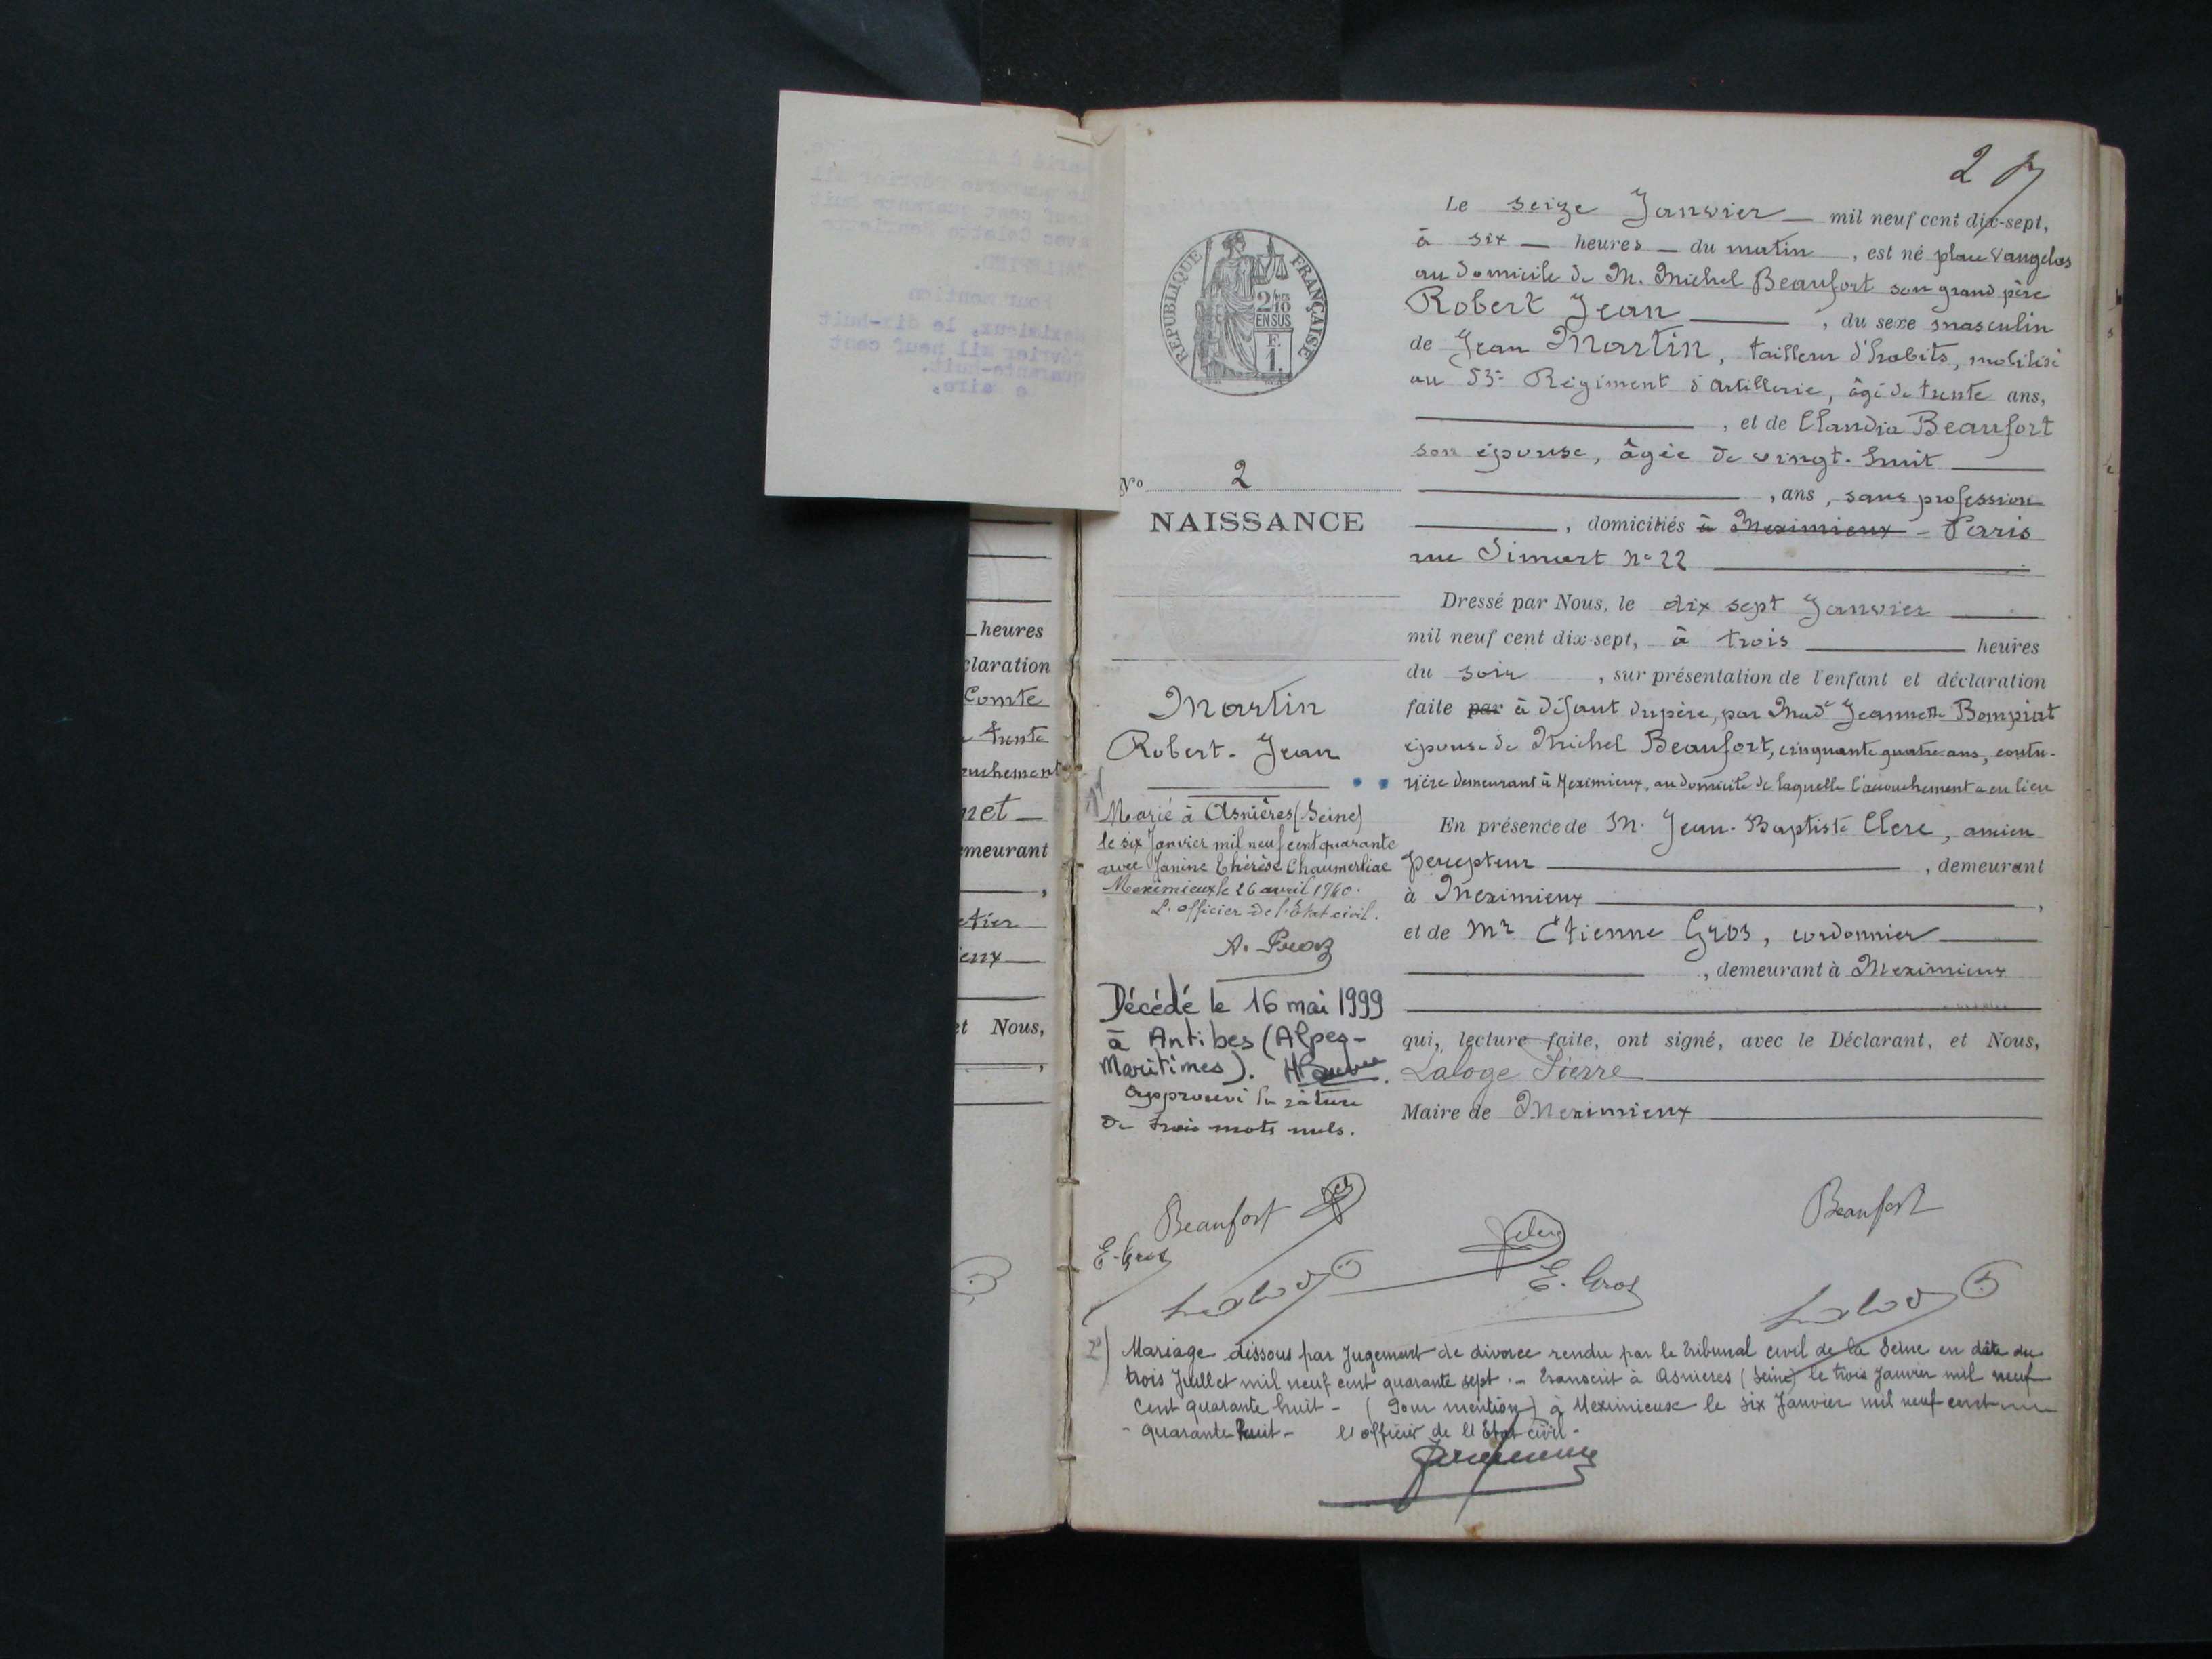 2
Le seize Janvier mil neuf cent dix-sept,
à six heures du matin, est né place Vaugelas
au domicile de M. Michel Beaufort son grand père
Robert Jean, du sexe masculin
de Jean Martin, tailleur d'habits, mobilisé
au 53e Régiment d'artillerie, âgé de trente ans,
, et de Claudia Beaufort
son épouse, âgée de vingt-huit
, ans, sans profession
, domiciliés à Meximieux - Paris
rue Simart No 22
Dressé par Nous, le dix sept Janvier
mil neuf cent dix-sept, à trois heures
du soir, sur présentation de l'enfant et déclaration
faite par à défaut du père, par Made Jeannette Bompiat
épouse de Michel Beaufort, cinquante quatre ans, coutu-
rière demeurant à Meximieux, au domicile de laquelle l'accouchement a eu lieu
En présence de M. Jean-Baptiste Clerc, ancien
percepteur, demeurant
à Meximieux,
et de Mr Etienne Gros, cordonnier
, demeurant à Meximieux
qui, lecture faite, ont signé, avec le Déclarant, et Nous,
Laloge Pierre
Maire de Meximieux
RÉPUBLIQUE FRANÇAISE
2/10
EN SUS
F.
1.
No 2
NAISSANCE
Martin
Robert-Jean
Marié à Asnières (Seine)
le six Janvier mil neuf cent quarante
avec Janine Thérèse Chaumerliac
Meximieux le 26 avril 1940.
L'officier de l'Etat civil.
Décédé le 16 mai 1999
à Antibes (Alpes-
Maritimes).
Approuvé la rature
de trois mots nuls.
Beaufort
Beaufort
E. Gros
Clerc
E. Gros
2°) Mariage dissous par Jugement de divorce rendu par le tribunal civil de la Seine en date du
trois Juillet mil neuf cent quarante sept. - Transcrit à Asnières (Seine) le trois Janvier mil neuf
cent quarante huit - (Pour mention) à Meximieux le six Janvier mil neuf cent
- quarante huit - L'officier de l'Etat civil -
heures
claration
Comte
trente
ouchement
net
emeurant
,
etier
eux
et Nous,
,